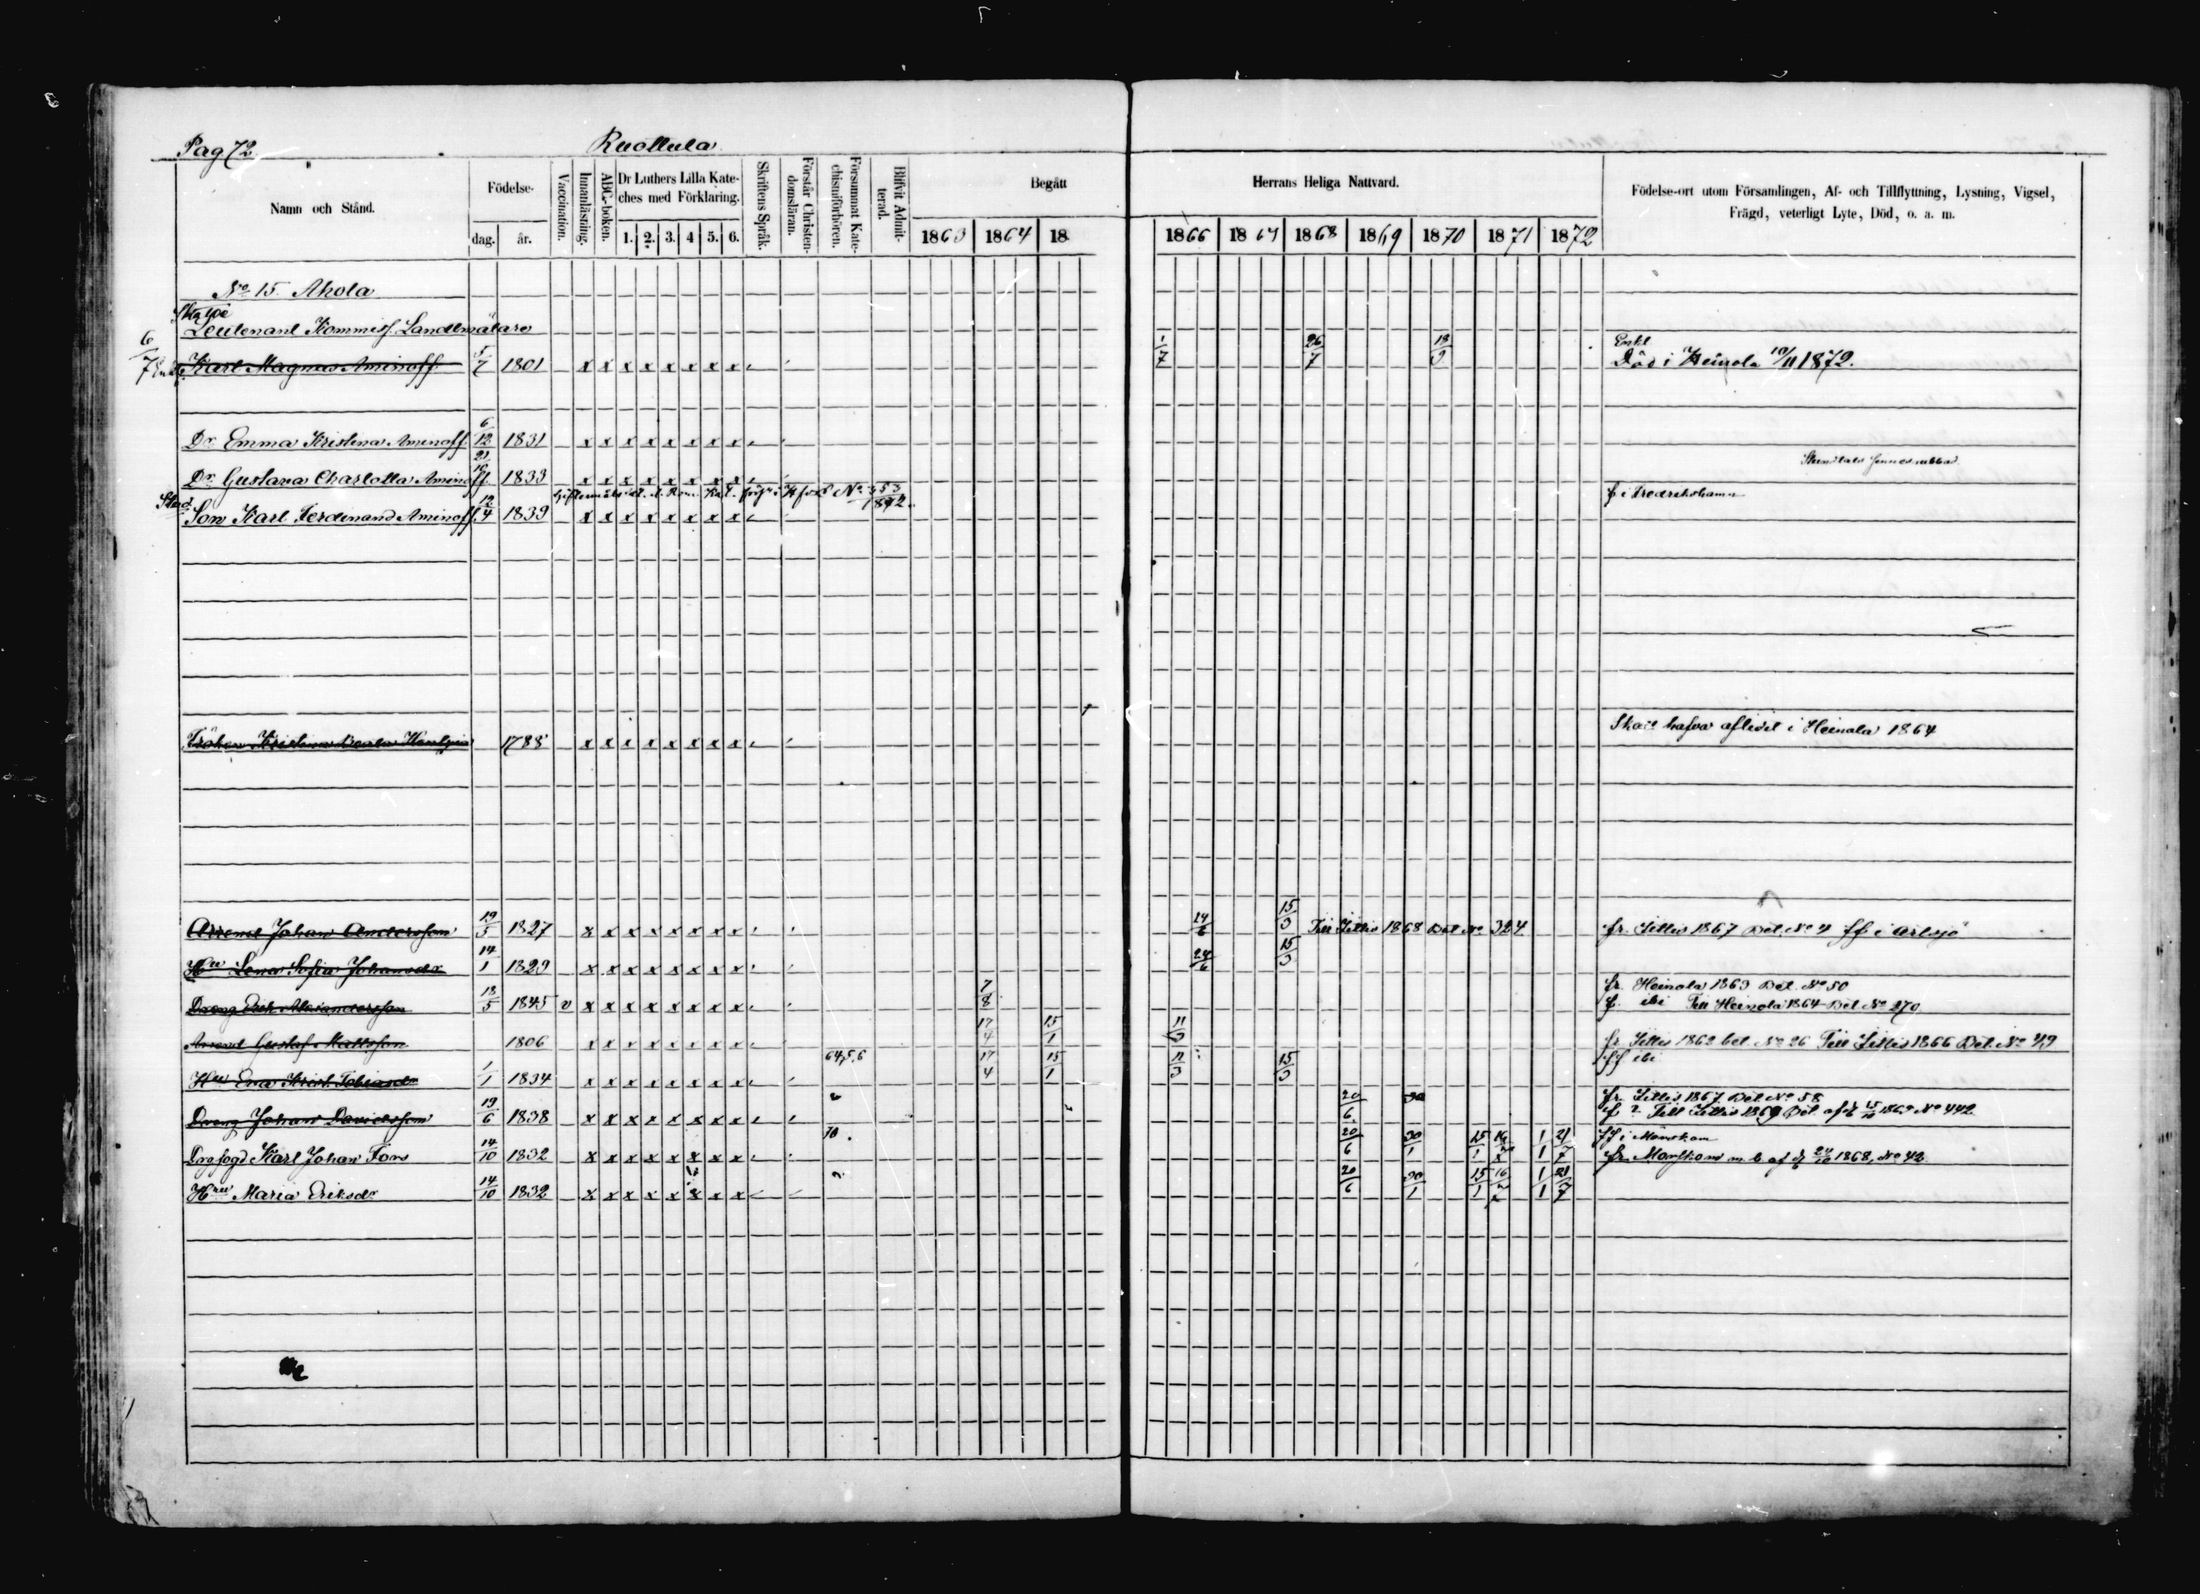 Pag 72.
Ruottula
Namn och Stånd.
Födelse-
dag.
år.
Vaccination.
Innanläsning.
ABC-boken.
Dr Luthers Lilla Kate-
ches med Förklaring.
1. 2. 3. 4 5. 6.
Skriftens Språk.
Förstår Christen-
domsläran.
Försummat Kate-
chismiförhören.
Blifvit Admit-
terad.
Begått
Herrans Heliga Nattvard.
1863 1864 18
1866 1867 1868 1869 1870 1871 1872
Födelse-ort utom Församlingen, Af- och Tillflyttning, Lysning, Vigsel,
Frägd, veterligt Lyte, Död, o. a. m.
No 15. Ahola
Leutenant Kommiss. Landtmätare
6/7 Karl Magnus Aminoff 5/7 1801 x x x x x x x x 1/7 26/7 Enkl
Död i Heinola 10/11 1872.
Dr Emma Kristina Aminoff 6/12 1831 x x x x x x x x
Dr Gustava Charlotta Aminoff 1833 x x x x x x x x
Son Karl Ferdinand Aminoff 12/4 1839 x x x x x x x x f. i Fredrikshamn
1788 x x x x x x x x Skall hafva aflidit i Heinola 1864
Arrend Johan Andersson 19/5 1827 x x x x x x x x 24/6 15/3 Till Sittis 1868 Bet. No 324 fr. Sittis 1867 Bet. No 4 ff i Artsjö
Hu Lena Sofia Johansdr 14/1 1829 x x x x x x x x 24/6 15/3
Dreng Erik Alexandersson 18/5 1845 v x x x x x x x x 7/8 fr. Heinola 1863 Bet. No 50
f. ibi Till Heinola 1864 Bet. No 270
Arrend Gustaf Mattsson 1806 x x x x x x x x 17/4 15/1 11/3 fr. Sittis 1862 bet. No 26 Till Sittis 1866 Bet. No 49
Hu Eva Krist. Tobiasdr 1/1 1834 x x x x x x x x 64,5,6 17/4 15/1 11/3 15/3 ff ibi
Dreng Johan Davidsson 19/6 1838 x x x x x x x x 20/6 fr. Sittis 1867 Bet. No 58
f ? Till Sittis 1869 Bet. af d. 1869 No 442
Drgfogd Karl Johan Fors 14/10 1832 x x x x x x x x 70. 20/6 30/1 15/1 1/1 21/7 ff i Mörskom
fr. Mörskom m. b. af d. 24/10 1868, No 42
Hru Maria Eriksdr 14/10 1832 x x x x x x x x 20/6 30/1 15/1 1/1 21/7